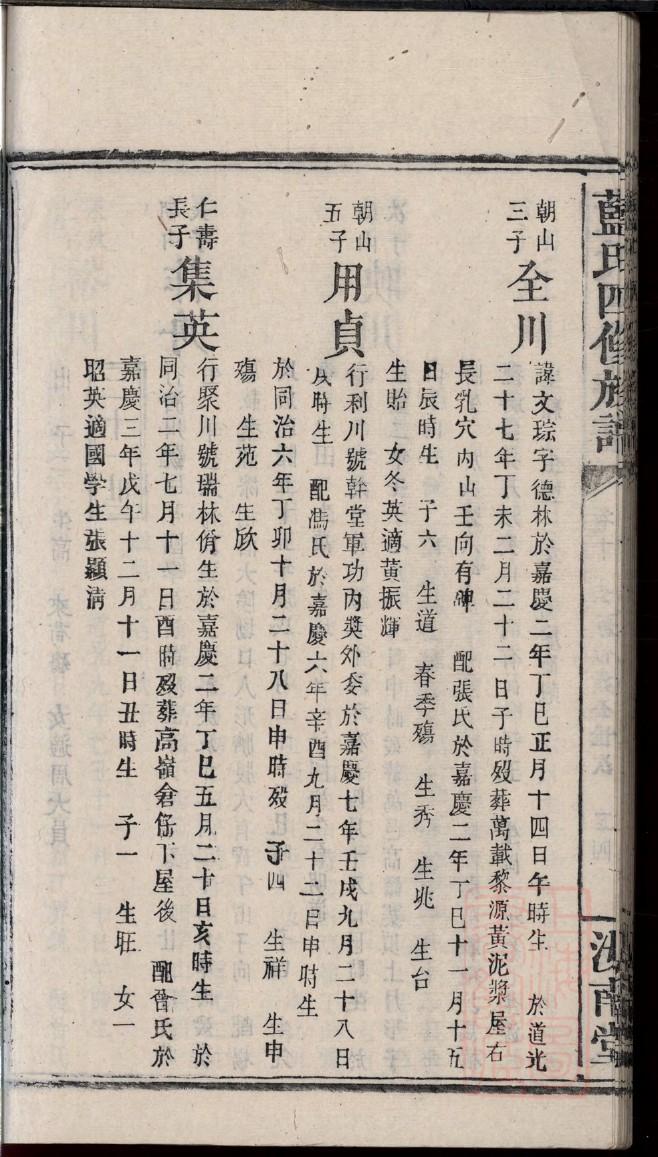 藍氏四修族譜
汝南堂
朝山
三子
全川
諱文琮字德林於嘉慶二年丁巳正月十四日午時生　於道光
二十七年丁未二月二十二日子時歿葬萬載黎源黃泥漿屋右
長乳穴內山壬向有碑　配張氏於嘉慶二年丁巳十一月十五
日辰時生　子六　生道　春季殤　生秀　生兆　生台
生貽　女冬英適黃振輝
朝山
五子
用貞
行利川號榦堂軍功內獎外委於嘉慶七年壬戌九月二十八日
戌時生　配馮氏於嘉慶六年辛酉九月二十二日申時生
於同治六年丁卯十月二十八日申時歿　子四　生祥　生申
殤　生苑　生欣
仁壽
長子
集英
行聚川號瑞林佾生於嘉慶二年丁巳五月二十日亥時生　於
同治二年七月十一日酉時歿葬高嶺倉仔下屋後　配晉氏於
嘉慶三年戊午十二月十一日丑時生　子一　生旺　女一
昭英適國學生張顯清